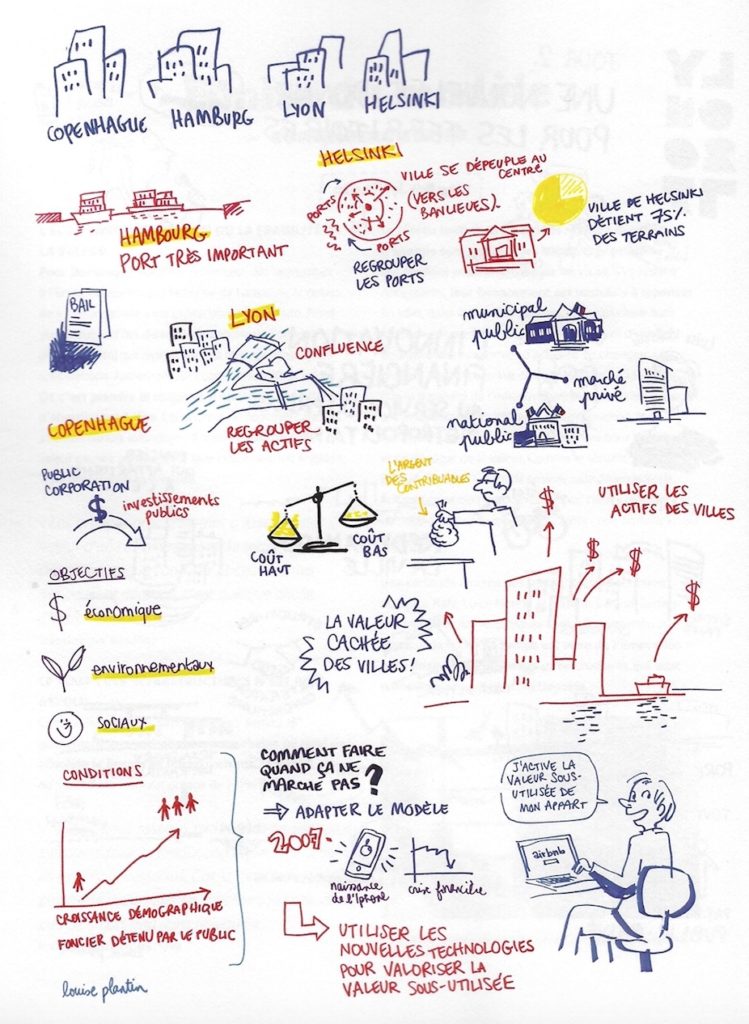 COPENHAGUE
HAMBURG
LYON
HELSINKI
HELSINKI
PORTS
PORTS
VILLE SE DÉPEUPLE AU
CENTRE
(VERS LES
BANLIEUES).
REGROUPER
LES PORTS
VILLE DE HELSINKI
DÉTIENT 75%
DES TERRAINS
HAMBOURG
PORT TRÈS IMPORTANT
BAIL
COPENHAGUE
LYON
CONFLUENCE
REGROUPER
LES ACTIFS
municipal
public
marché
privé
national
public
PUBLIC
CORPORATION
$
investissements
publics
OBJECTIFS
$ économique
environnementaux
SOCIAUX
COÛT
HAUT
COÛT
BAS
L'ARGENT
DES
CONTRIBUABLES
UTILISER LES
ACTIFS DES VILLES
$
$
$
$
LA VALEUR
CACHÉE
DES VILLES!
CONDITIONS
CROISSANCE DÉMOGRAPHIQUE
FONCIER DÉTENU PAR LE PUBLIC
COMMENT FAIRE
QUAND ÇA NE
MARCHE PAS ?
⇒ ADAPTER LE MODÈLE
2007
naissance
de l'Iphone
crise financière
UTILISER LES
NOUVELLES TECHNOLOGIES
POUR VALORISER LA
VALEUR SOUS-UTILISÉE
J'ACTIVE LA
VALEUR SOUS-
UTILISÉE DE
MON APPART
airbnb
louise plantin